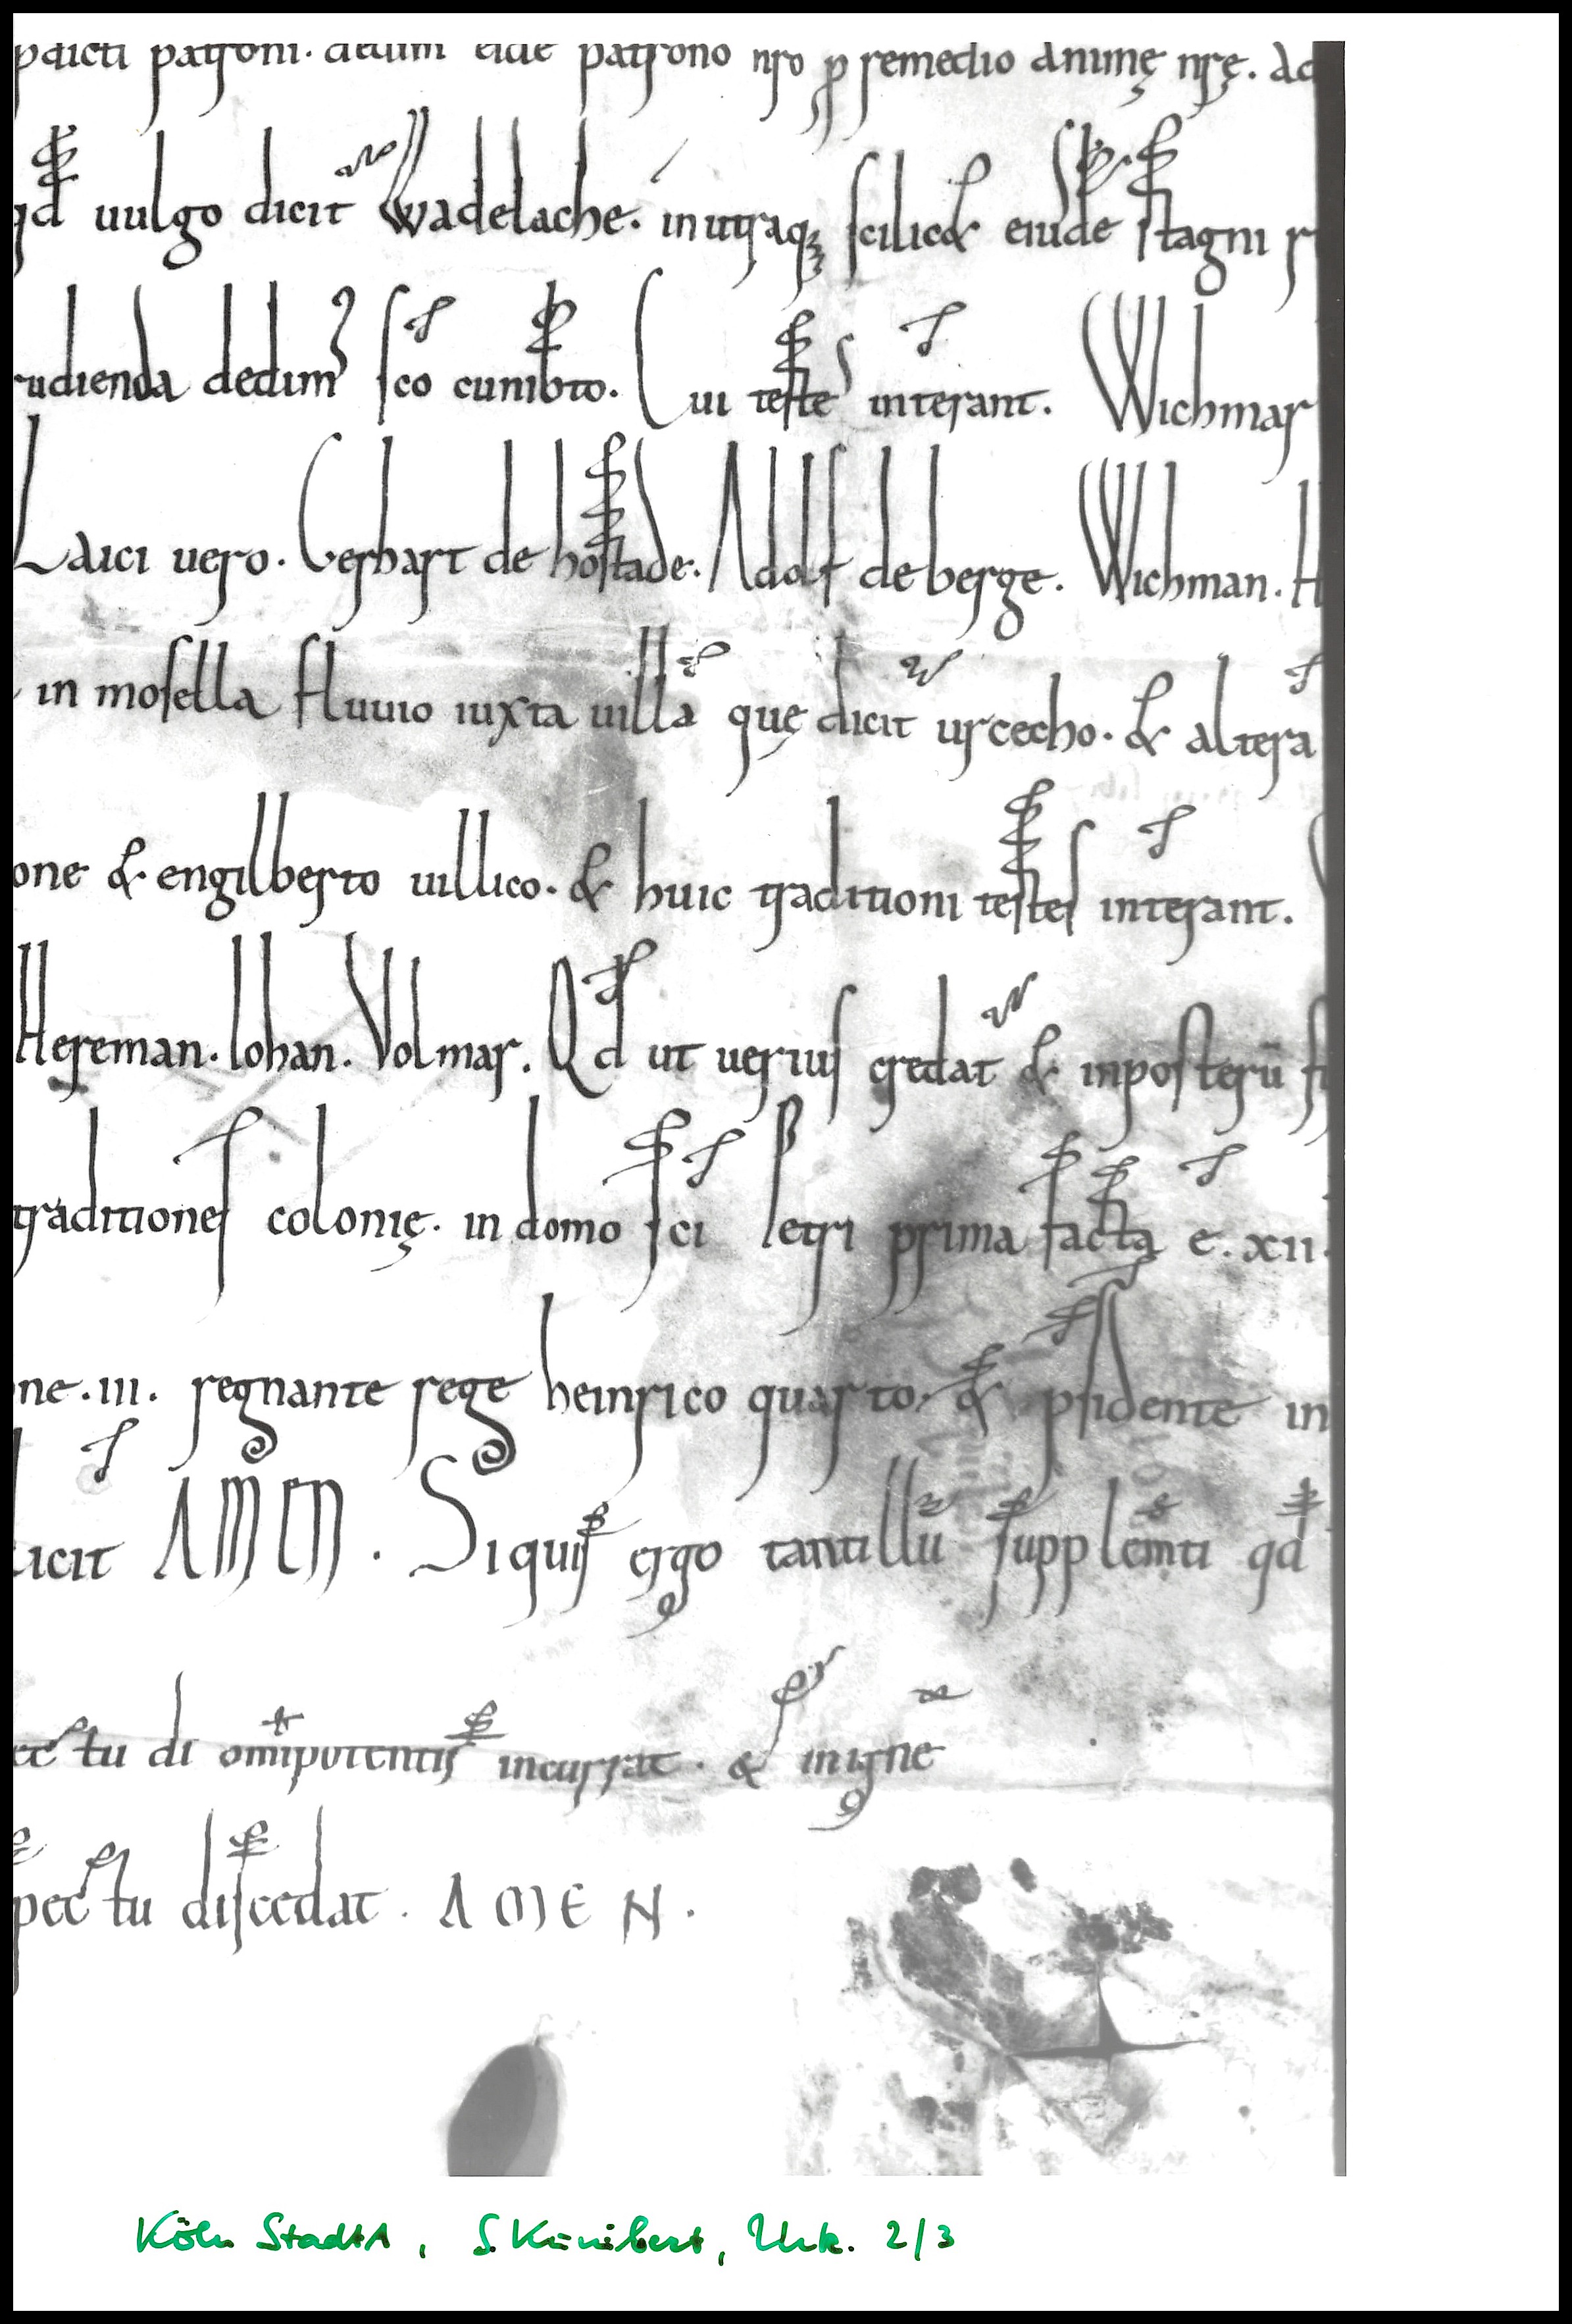 pdicti patroni. dedim eide patrono nro p remedio animę nrę. Ad
qd uulgo dicit Wadelache. in utraq; scilic& eiusde stagni r
rudienda dedim' sco cunibto. Cui testes interant. Wichmar
Laici uero. Gerhart de hostade. Adolf de berge. Wichman. H
in mosella fluuio iuxta uillā quę dicit urcecho. & altera
one & engilberto uillico. & huic traditioni testes interant.
Hereman. Iohan. Volmar. Qd ut uerius credat & inposterū fi
traditiones colonię. in domo sci Petri prima facta e. xii.
ne. iii. regnante rege heinrico quarto. & psidente in
licit AMEN. Siquis ergo tantillū supplemti qd
ectu di omipotentis incurrat. & in igne
pectu discedat. AMEN.
Köln StadtA, S. Kunibert, Urk. 2/3